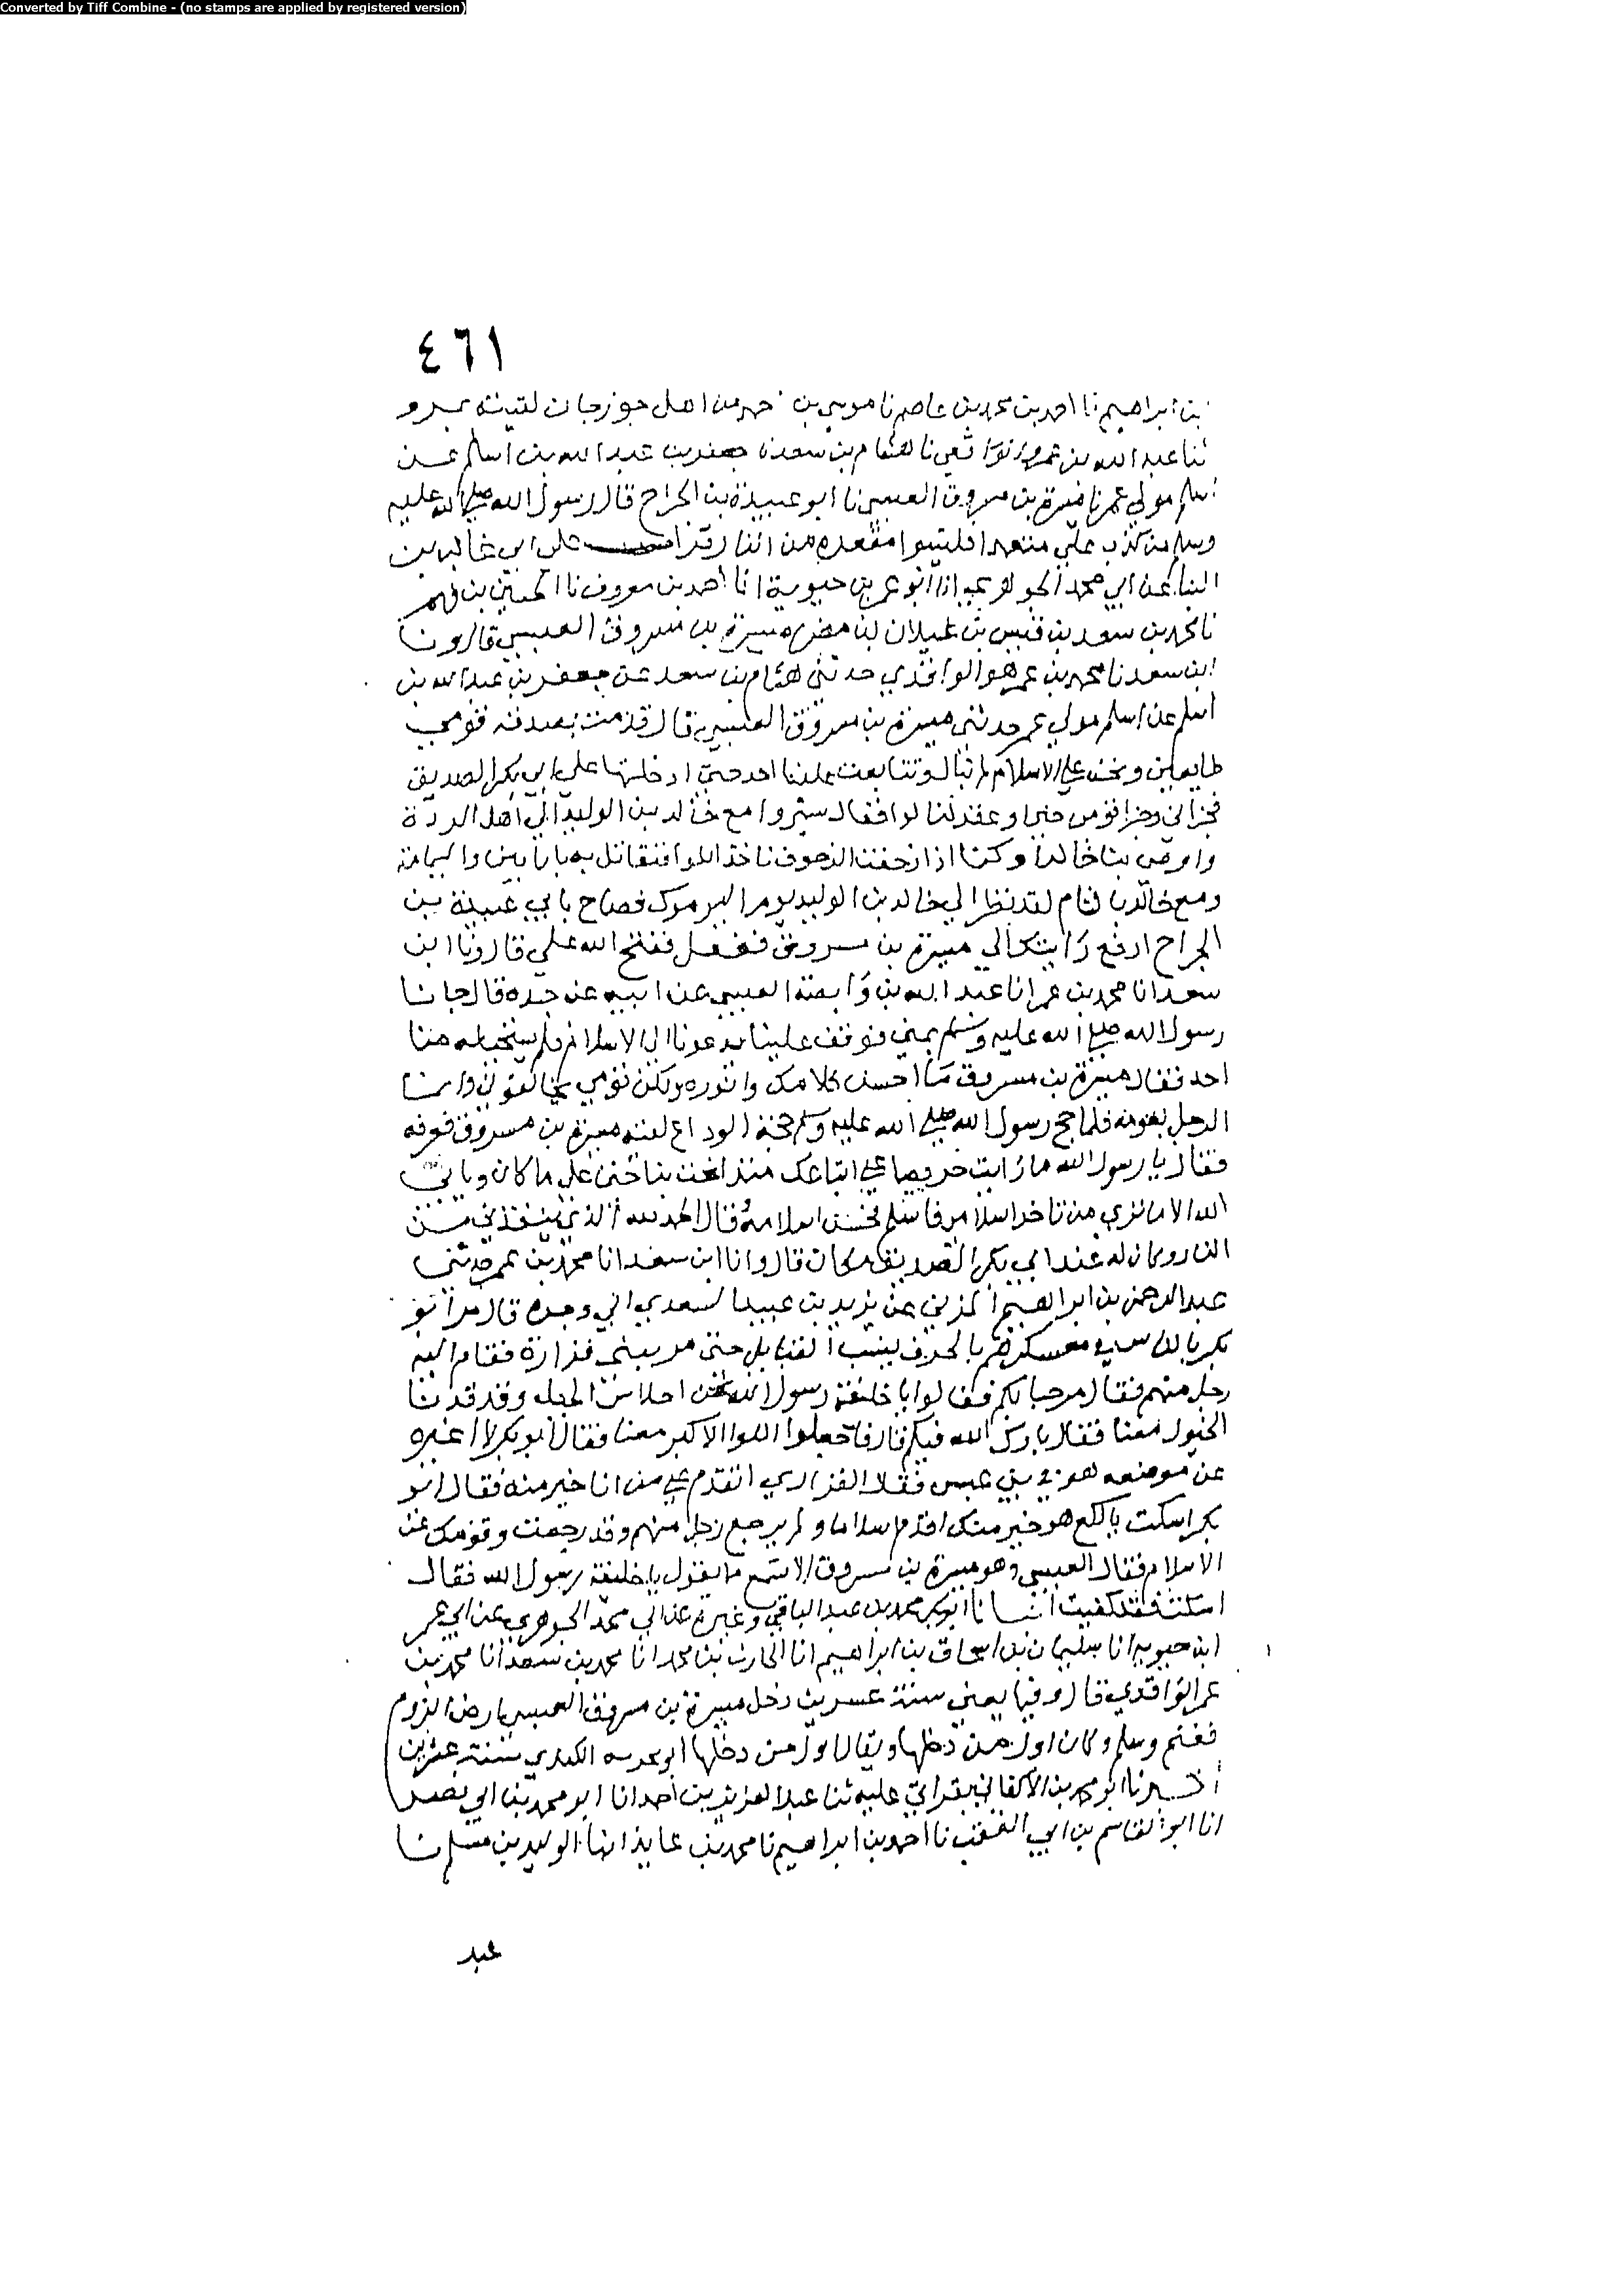 Converted by Tiff Combine - (no stamps are applied by registered version)
٤٦١
بن ابراهيم نا احمد بن محمد بن عاصم نا موسى بن من اهل جوزجان لقيته بمرو
ثنا عبد الله بن عمرو نا هشام بن سعد نا جعفر بن عبد الله بن اسلم عن
اسلم مولي عمر نا ميسرة بن مسروق العبسي نا ابو عبيدة بن الجراح قال رسول الله صلى الله عليه
وسلم من كذب علي متعمدا فليتبوا مقعده من النار قرا على ابي غالب بن
البنا عن ابي محمد الجوهري انا ابو عمر بن حيوية انا احمد بن معروف نا الحسين بن فهم
نا محمد بن سعد بن قيس بن عيلان بن مضر ميسرة بن مسروق العبسي قال ونا
ابن سعد نا محمد بن عمر هو الواقدي حدثني هشام بن سعد عن جعفر بن عبد الله بن
اسلم عن اسلم مولي عمر حدثني ميسرة بن مسروق العبسي قال قدمت بصدقة قومي
طايعين ونحن علي الاسلام احد حتي ادخلتها علي ابي بكر الصديق
فجزاني وجزا قومي خيرا وعقد لنا لوا فقال سيروا مع خالد بن الوليد الي اهل الردة
واوصي بنا خالدا وكنا اذا زحفت الزحوف ناخذ اللوا فنقاتل به بابانين واليمامة
ومع خالد بالشام لقد نظر الي خالد بن الوليد يوم اليرموك فصاح بابي عبيدة بن
الجراح ادفع رايتك الي ميسرة بن مسروق ففعل ففتح الله علي قال ونا ابن
سعد انا محمد بن عمر انا عبد الله بن وابصة العبسي عن ابيه عن جده قال جانا
رسول الله صلى الله عليه وسلم بمني فوقف علينا يدعونا الي الاسلام فلم يستجب له منا
احد فقال ميسرة بن مسروق ما احسن كلامك وانوره ولكن قومي يخالفوني وانما
الرجل بقومه فلما حج رسول الله صلى الله عليه وسلم حجة الوداع لقيه ميسرة بن مسروق فعرفه
فقال يا رسول الله ما زلت حريصا علي اتباعك منذ انخت بنا حتى كان ما كان ويابي
الله الا ما تري من تاخر اسلامي فاسلم فحسن اسلامه وقال الحمد لله الذي ينقذني من
النار وكان له عند ابي بكر الصديق مكان قال وانا ابن سعد انا محمد بن عمر حدثني
عبد الرحمن بن ابراهيم المزني عن يزيد بن عبيد السعدي ابي وجزة قال مر ابو
بكر بالناس في معسكرهم بالجرف ينسب القبايل حتى مر ببني فزارة فقام اليه
رجل منهم فقال مرحبا بكم فقالوا يا خليفة رسول الله نحن احلاس الخيل وقد قدنا
الخيول معنا فقال بارك الله فيكم قال فاجعلوا اللوا الاكبر معنا فقال ابو بكر لا اغيره
عن موضعه هو في بني عبس فقال الفزاري اتقدم علي من انا خير منه فقال ابو
بكر اسكت يا لكع هو خير منك اقدم اسلاما ولم يرجع رجل منهم وقد رجعت وقومك عن
الاسلام فقال العبسي وهو ميسرة بن مسروق الا تسمع ما يقول يا خليفة رسول الله فقال
اسكت فقد كفيت انبانا ابو بكر محمد بن عبد الباقي وغيره عن ابي محمد الجوهري عن ابي عمر
ابن حيويه انا سليمان بن اسحاق بن ابراهيم انا الحارث بن محمد انا محمد بن سعد انا محمد بن
عمر الواقدي قال وفيها يعني سنة عشرين دخل ميسرة بن مسروق العبسي ارض الروم
فغنم وسلم وكان اول من دخلها ويقال اول من دخلها ابو بحرية الكندي سنة عشرين
اخبرنا ابو محمد بن الاكفاني بقراتي عليه ثنا عبد العزيز بن احمد انا ابو محمد بن ابي نصر
انا ابو القاسم بن ابي العقب نا احمد بن ابراهيم نا محمد بن عايذ انا الوليد بن مسلم نا
عبد